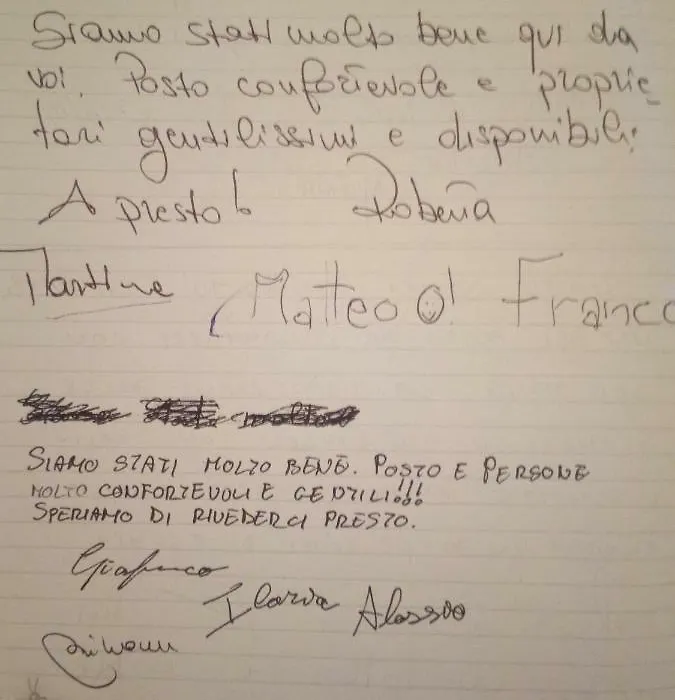 Siamo stati molto bene qui da
voi. Posto confortevole e proprie
tari gentilissimi e disponibili.
A presto! Roberta
Martine Matteo Franco
SIAMO STATI MOLTO BENE. POSTO E PERSONE
MOLTO CONFORTEVOLI E GENTILI!!!
SPERIAMO DI RIVEDERCI PRESTO.
Ilaria Alessio